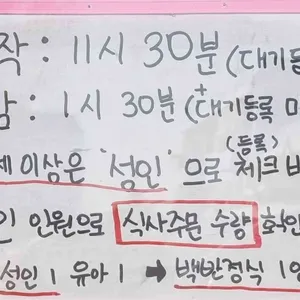 작 : 11시 30분 (대기등
감 : 1시 30분 (+대기등록 마
(등록)
세 이상은 "성인"으로 체크 바
인 인원으로 식사주문 수량 확인
성인 1 유아 1 ➡ 백반정식 1인